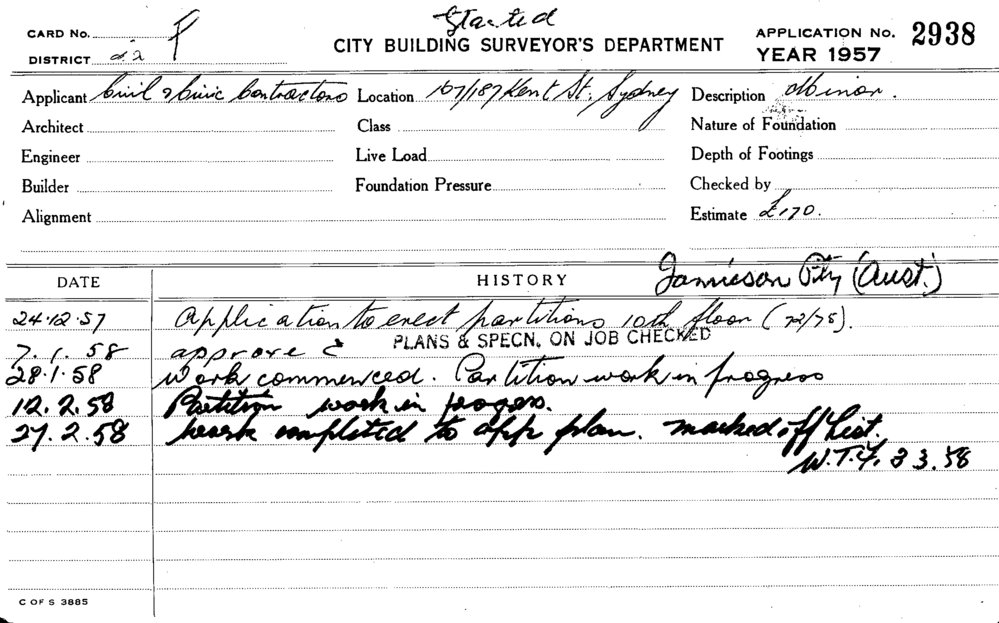 Started
CARD No. F
CITY BUILDING SURVEYOR'S DEPARTMENT
APPLICATION No. 2938
DISTRICT d2
YEAR 1957
Applicant Civil & Civic Contractors Location 167/187 Kent St., Sydney Description Minor.
Architect Class Nature of Foundation
Engineer Live Load Depth of Footings
Builder Foundation Pressure Checked by
Alignment Estimate £170.
DATE HISTORY Jamieson Pty (Aust.)
24.12.57 Application to erect partitions 10th floor (72/78).
7.1.58 approve PLANS & SPECN. ON JOB CHECKED
28.1.58 Work commenced. Partition work in progress
12.2.58 Partition work in progess.
27.2.58 Work completed to app plan. marked off list.
W.T.Y. 3 3.58
C OF S 3885